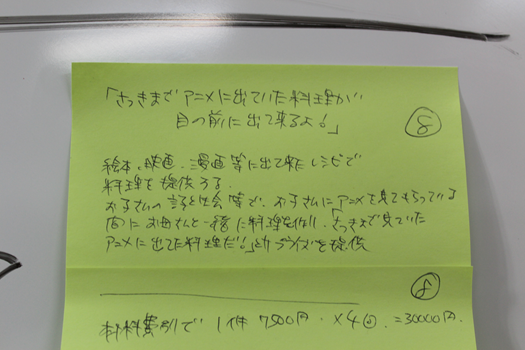 「さっきまでアニメに出ていた料理が
目の前に出て来るよ!」
⑧
絵本、映画、漫画等に出て来たレシピで
料理を提供する。
お子さんの誕生会等で、お子さんにアニメを見てもらっている
間にお母さんと一緒に料理を作り、「さっきまで見ていた
アニメに出てた料理だ!」とサプライズを提供
⑧
材料費別で 1件 7500円 ×4回 =30000円.